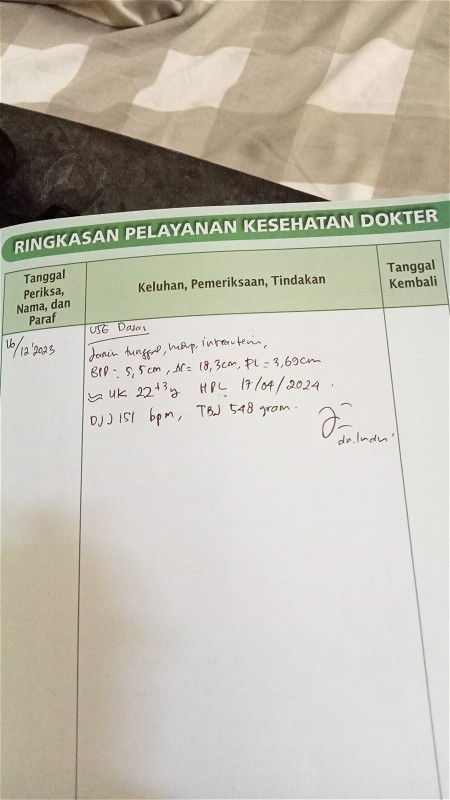 RINGKASAN PELAYANAN KESEHATAN DOKTER
Tanggal
Periksa,
Nama, dan
Paraf
Keluhan, Pemeriksaan, Tindakan
Tanggal
Kembali
16/12'2023
USG Dasar
Janin tunggal, hidup, intrauterin,
BPD = 5,5cm, AC = 18,3cm, FL = 3,69cm
≈ UK 22+3 HPL 17/04/2024.
DJJ 151 bpm, TBJ 548 gram.
dr. Indri